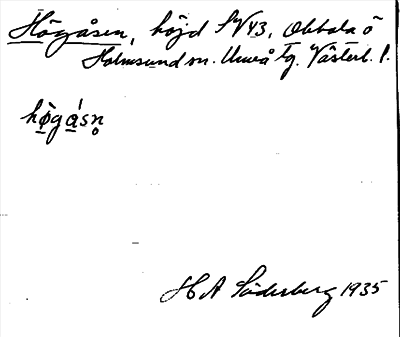 Högåsen, höjd SV 43, Obbola ö
Holmsund sn. Umeå tg. Västerb. l.
hø̀gásn̥
H A Söderberg 1935